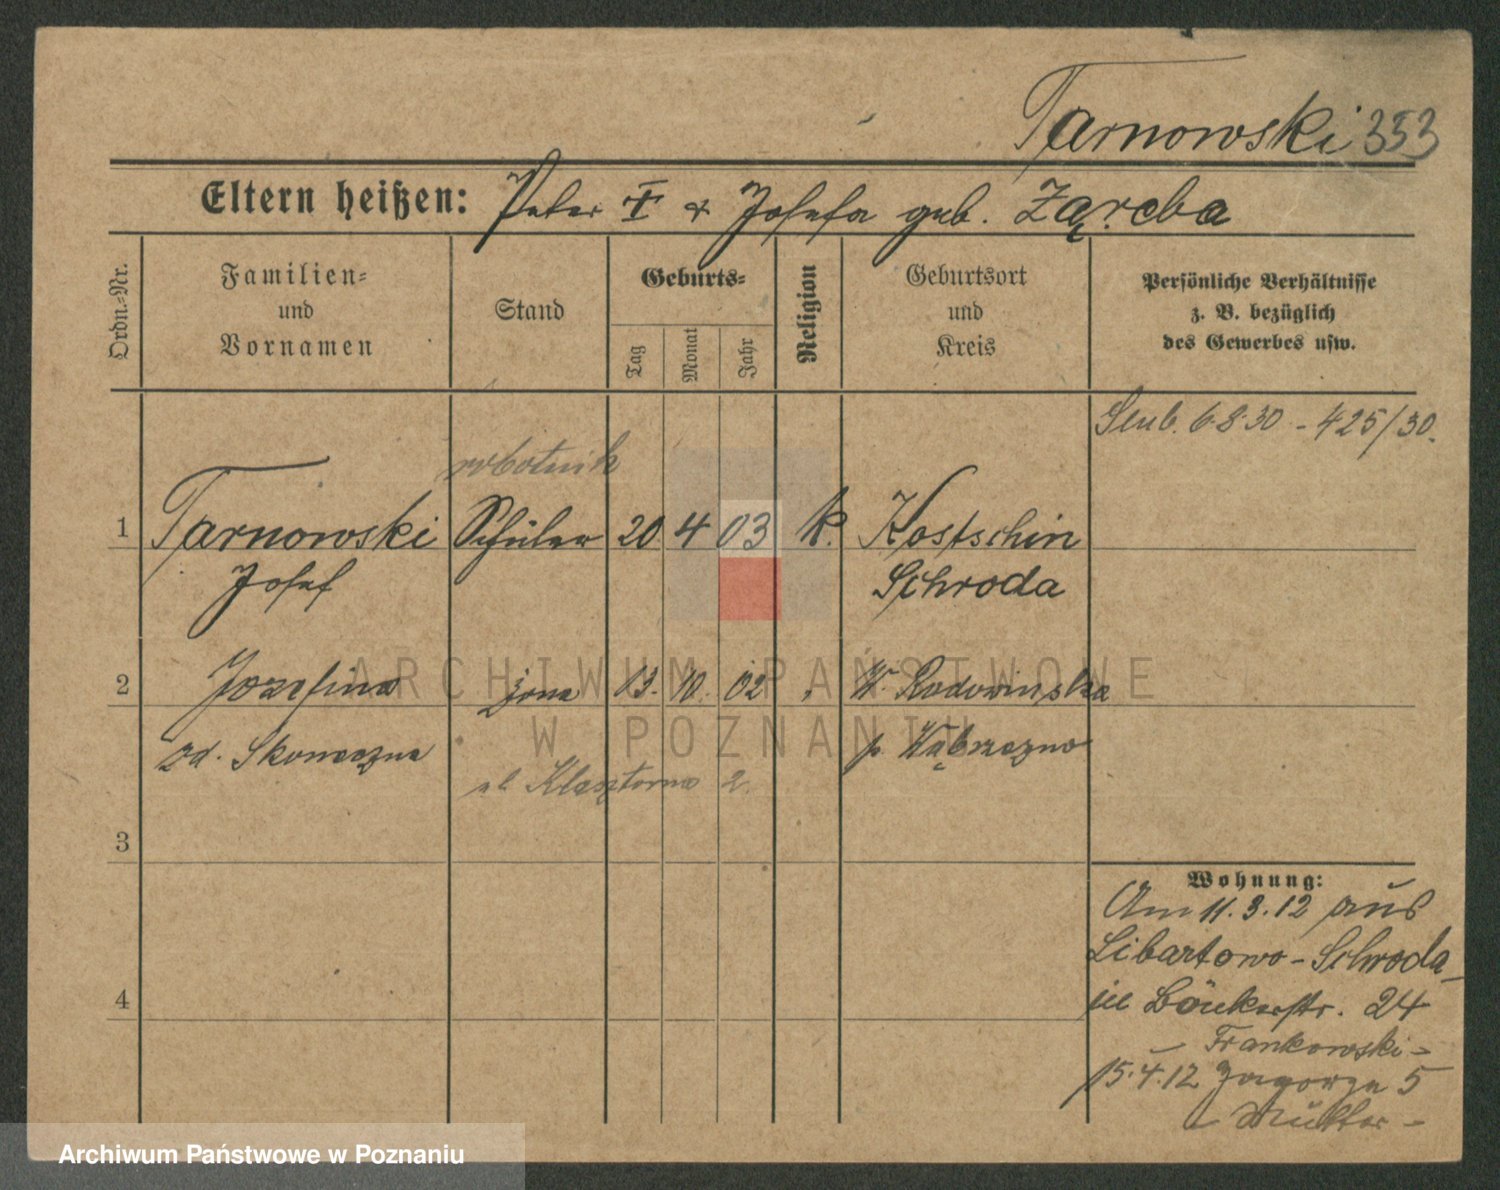 Tarnowski 353
Eltern heißen: Peter † & Josefa geb. Zaręba
Ordn.-Nr.
Familien-
und
Vornamen
Stand
Geburts-
Tag
Monat
Jahr
Religion
Geburtsort
und
Kreis
Persönliche Verhältnisse
z. B. bezüglich
des Gewerbes usw.
6.8.30 - 425/30.
robotnik
1 Tarnowski Schüler 20 4 03 k. Kostschin
Josef Schroda
2 Jozefina żona 13. 10. 02 " W. Radowiska
zd. Skoneczna p. Wąbrzezno
ul Klasztorna 2.
3
Wohnung:
Am 11.3.12 aus
Libartowo - Schroda
in Bäckerstr. 24
- Frankowski -
15.4.12 Zagorze 5
- Mutter -
4
ARCHIWUM PAŃSTWOWE
W POZNANIU
Archiwum Państwowe w Poznaniu